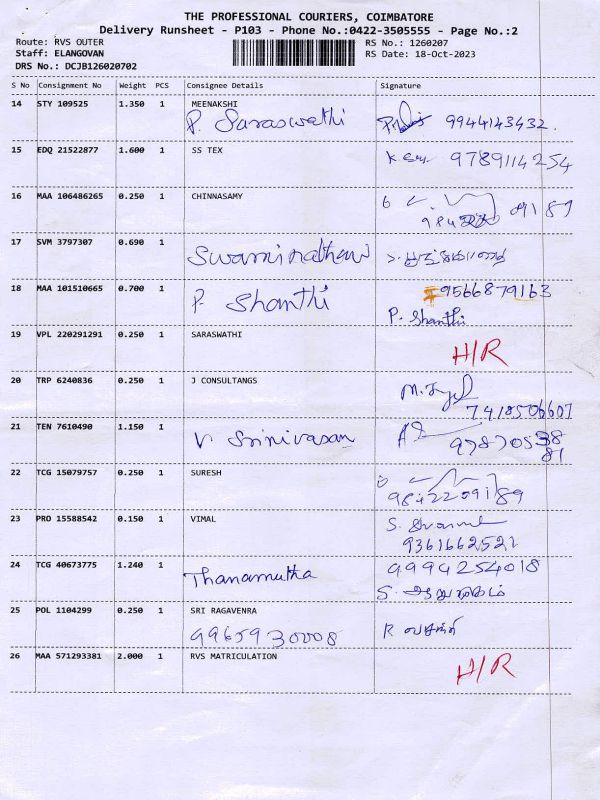 THE PROFESSIONAL COURIERS, COIMBATORE
Delivery Runsheet - P103 - Phone No.:0422-3505555 - Page No.:2
Route: RVS OUTER RS No.: 1260207
Staff: ELANGOVAN RS Date: 18-Oct-2023
DRS No.: DCJB126020702
S No Consignment No Weight PCS Consignee Details Signature
14 STY 109525 1.350 1 MEENAKSHI
P. Saraswathi 9944143432.
15 EDQ 21522877 1.600 1 SS TEX
9789114254
16 MAA 106486265 0.250 1 CHINNASAMY
17 SVM 3797307 0.690 1
Swaminathan
18 MAA 101510665 0.700 1 9566879163
P. Shanthi P. Shanthi
19 VPL 220291291 0.250 1 SARASWATHI
H/R
20 TRP 6240836 0.250 1 J CONSULTANGS
7418506607
21 TEN 7610490 1.150 1
V Srinivasan
22 TCG 15079757 0.250 1 SURESH
9842209189
23 PRO 15588542 0.150 1 VIMAL
9361662521
24 TCG 40673775 1.240 1 9994254018
Thanamutha
25 POL 1104299 0.250 1 SRI RAGAVENRA
9965930008 R வசந்தி
26 MAA 571293381 2.000 1 RVS MATRICULATION
H/R